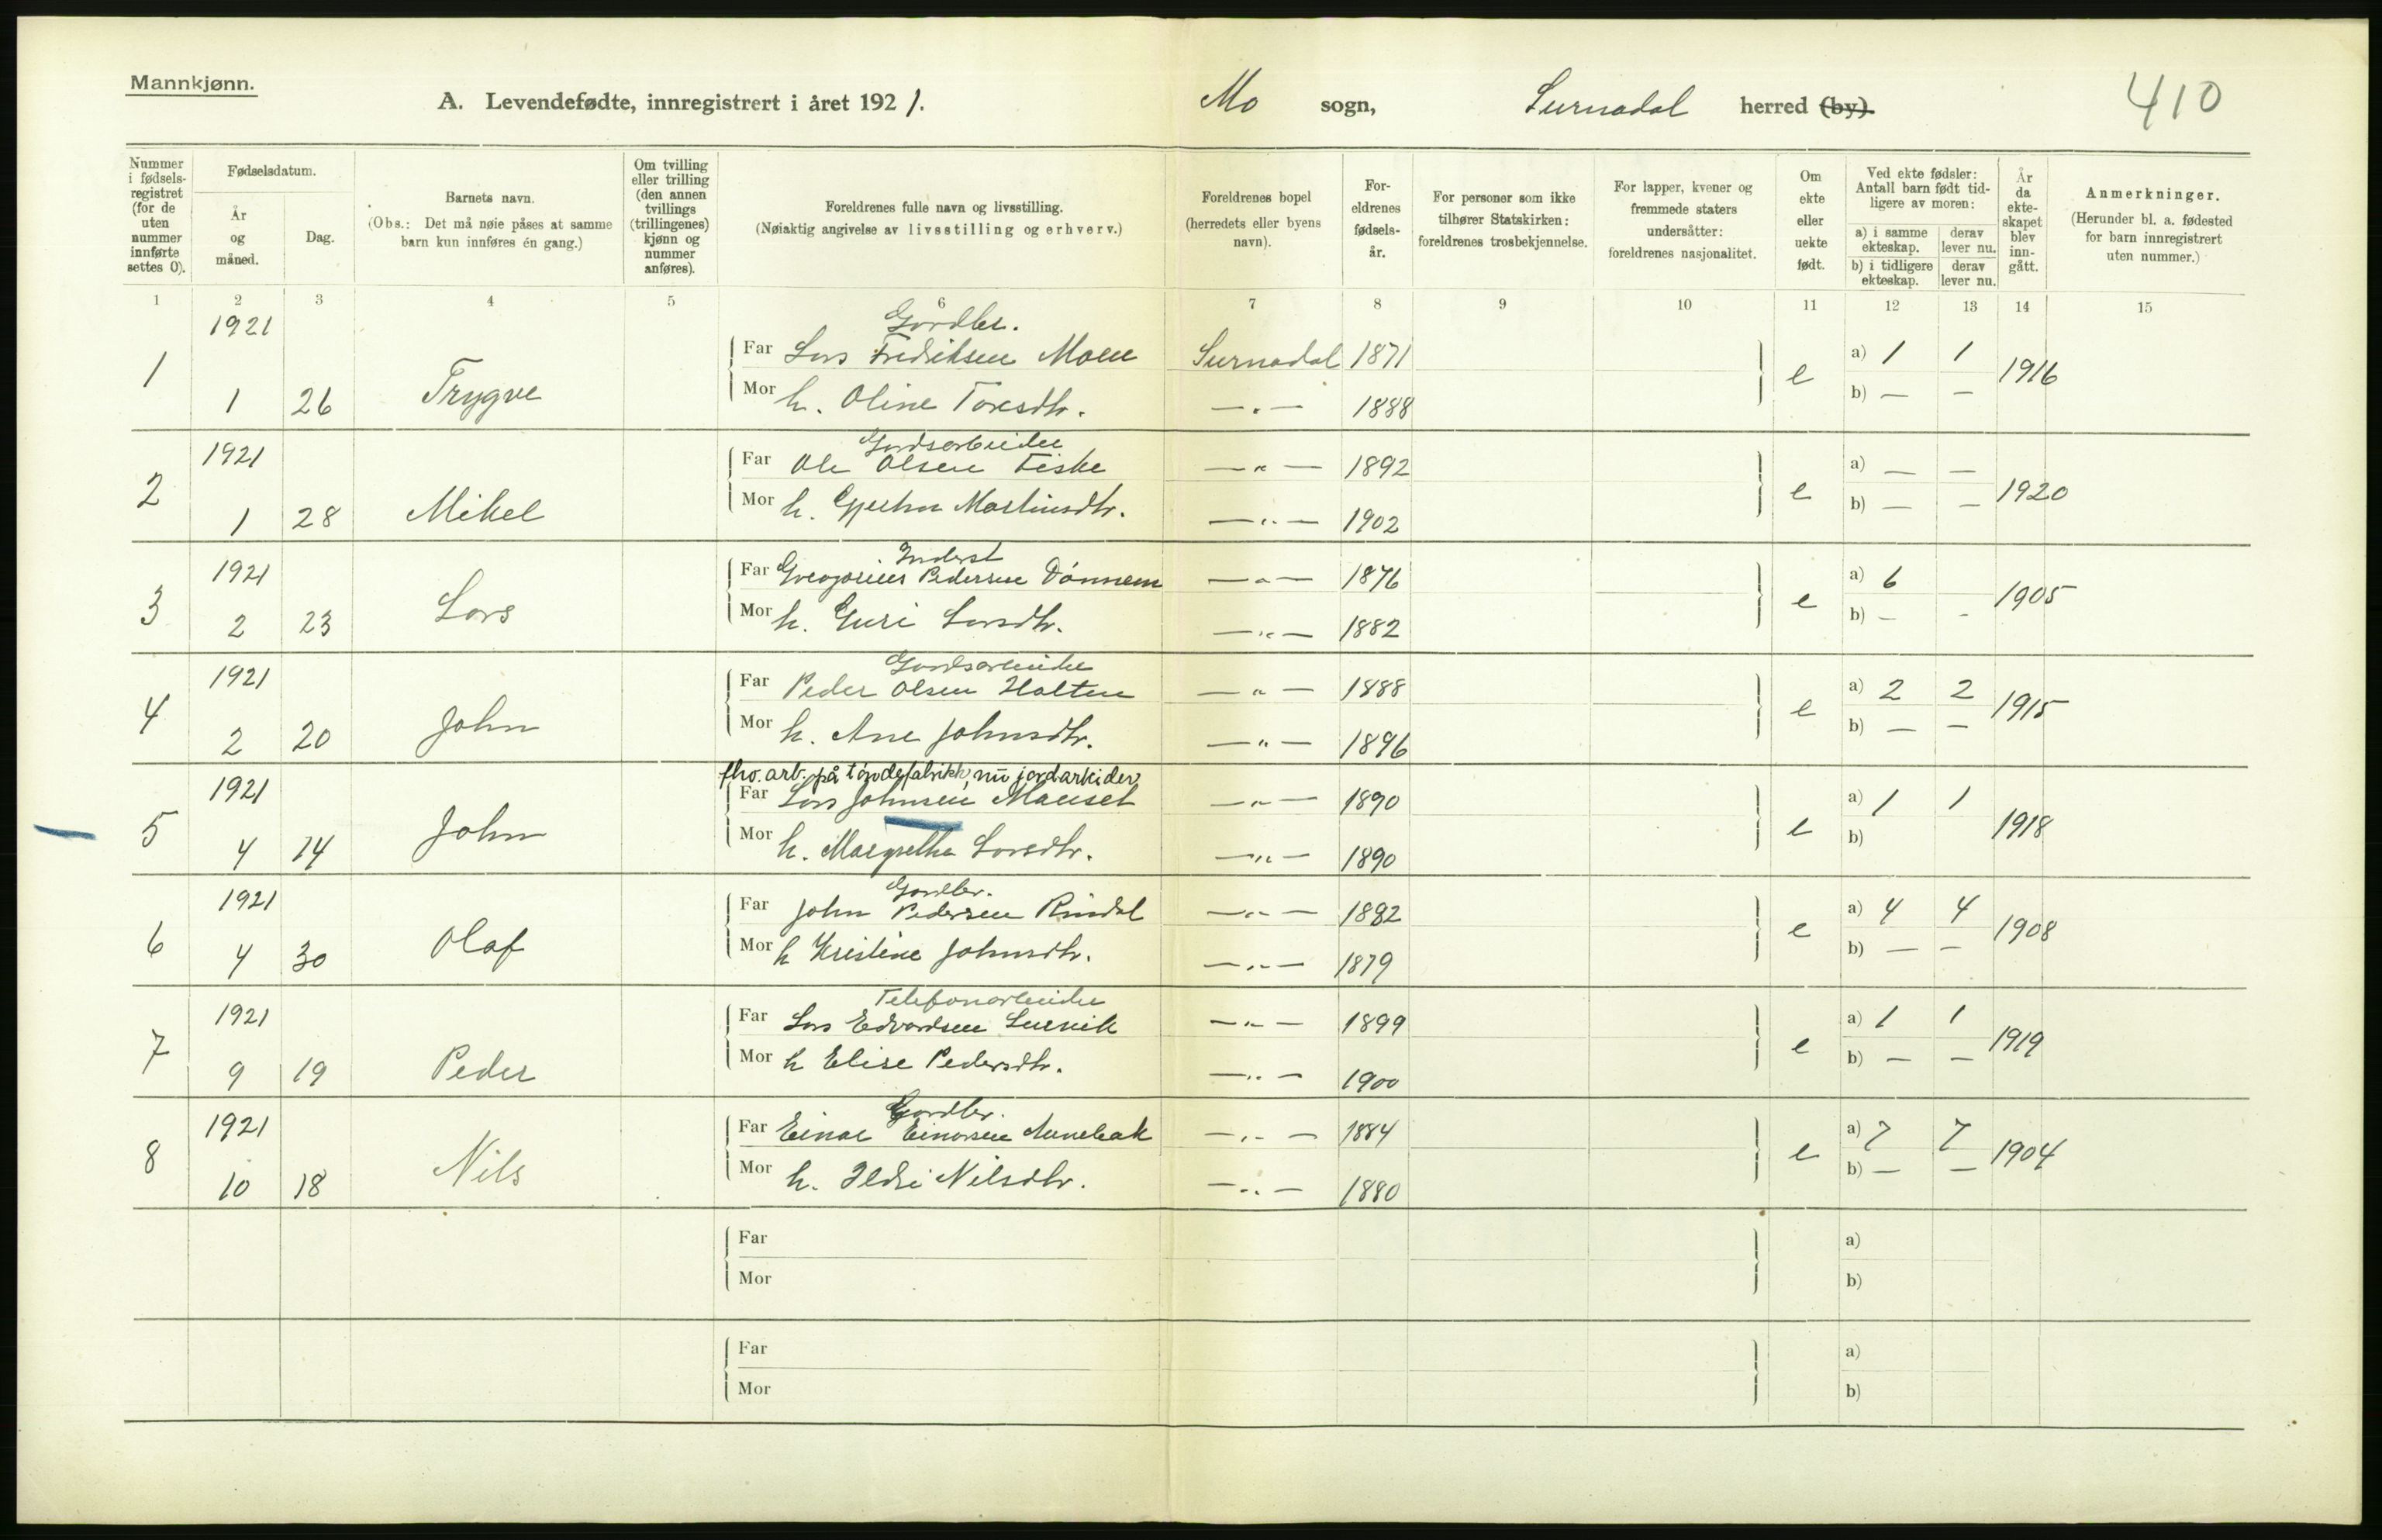 Mannkjønn.
A. Levendefødte, innregistrert i året 1921.
Mo sogn, Surnadal herred (by).
410
Nummer i fødselsregistret (for de uten nummer innførte settes 0).
Fødselsdatum.
År og måned.
Dag.
Barnets navn.
(Obs.: Det må nøie påses at samme barn kun innføres én gang.)
Om tvilling eller trilling (den annen tvillings (trillingenes) kjønn og nummer anføres).
Foreldrenes fulle navn og livsstilling.
(Nøiaktig angivelse av livsstilling og erhverv.)
Foreldrenes bopel (herredets eller byens navn).
Foreldrenes fødselsår.
For personer som ikke tilhører Statskirken: foreldrenes trosbekjennelse.
For lapper, kvener og fremmede staters undersåtter: foreldrenes nasjonalitet.
Om ekte eller uekte født.
Ved ekte fødsler: Antall barn født tidligere av moren:
a) i samme ekteskap.
derav lever nu.
b) i tidligere ekteskap.
derav lever nu.
År da ekteskapet blev inngått.
Anmerkninger.
(Herunder bl. a. fødested for barn innregistrert uten nummer.)
1 2 3 4 5 6 7 8 9 10 11 12 13 14 15
1921
Gårdbr.
1 Far Lars Fredriksen Moen Surnadal 1871 a) 1 1
1 26 Trygve Mor h. Oline Toresdtr. —„— 1888 e b) — — 1916
1921
Gardsarbeider
2 Far Ole Olsen Fiske —„— 1892 a) — —
1 28 Mikel Mor h. Gjertru Martinsdtr. —„— 1902 e b) — — 1920
1921
Inderst
3 Far Gregorius Pedersen Dønnem —„— 1876 a) 6
2 23 Lars Mor h. Guri Larsdtr. —„— 1882 e b) — - 1905
1921
Gardsarbeider
4 Far Peder Olsen Holten —„— 1888 a) 2 2
2 20 John Mor h. Ane Johnsdtr. —„— 1896 e b) — — 1915
1921
fhv. arb. på tøndefabrikk, nu jordarbeider
5 Far Lars Johnsen Mauset —„— 1890 a) 1 1
4 14 John Mor h. Margrethe Larsdtr. —„— 1890 e b) 1918
1921
Gardbr.
6 Far John Pedersen Rindal —„— 1882 a) 4 4
4 30 Olaf Mor h Kristine Johnsdtr. —„— 1879 e b) — — 1908
1921
Telefonarbeider
7 Far Lars Edvardsen —„— 1899 a) 1 1
9 19 Peder Mor h Elise Pedersdtr. —„— 1900 e b) — — 1919
1921
Gardbr.
8 Far Einar Einarsen —„— 1884 a) 7 7
10 18 Nils Mor h. Ildri Nilsdtr. —„— 1880 e b) — — 1904
Far a)
Mor b)
Far a)
Mor b)